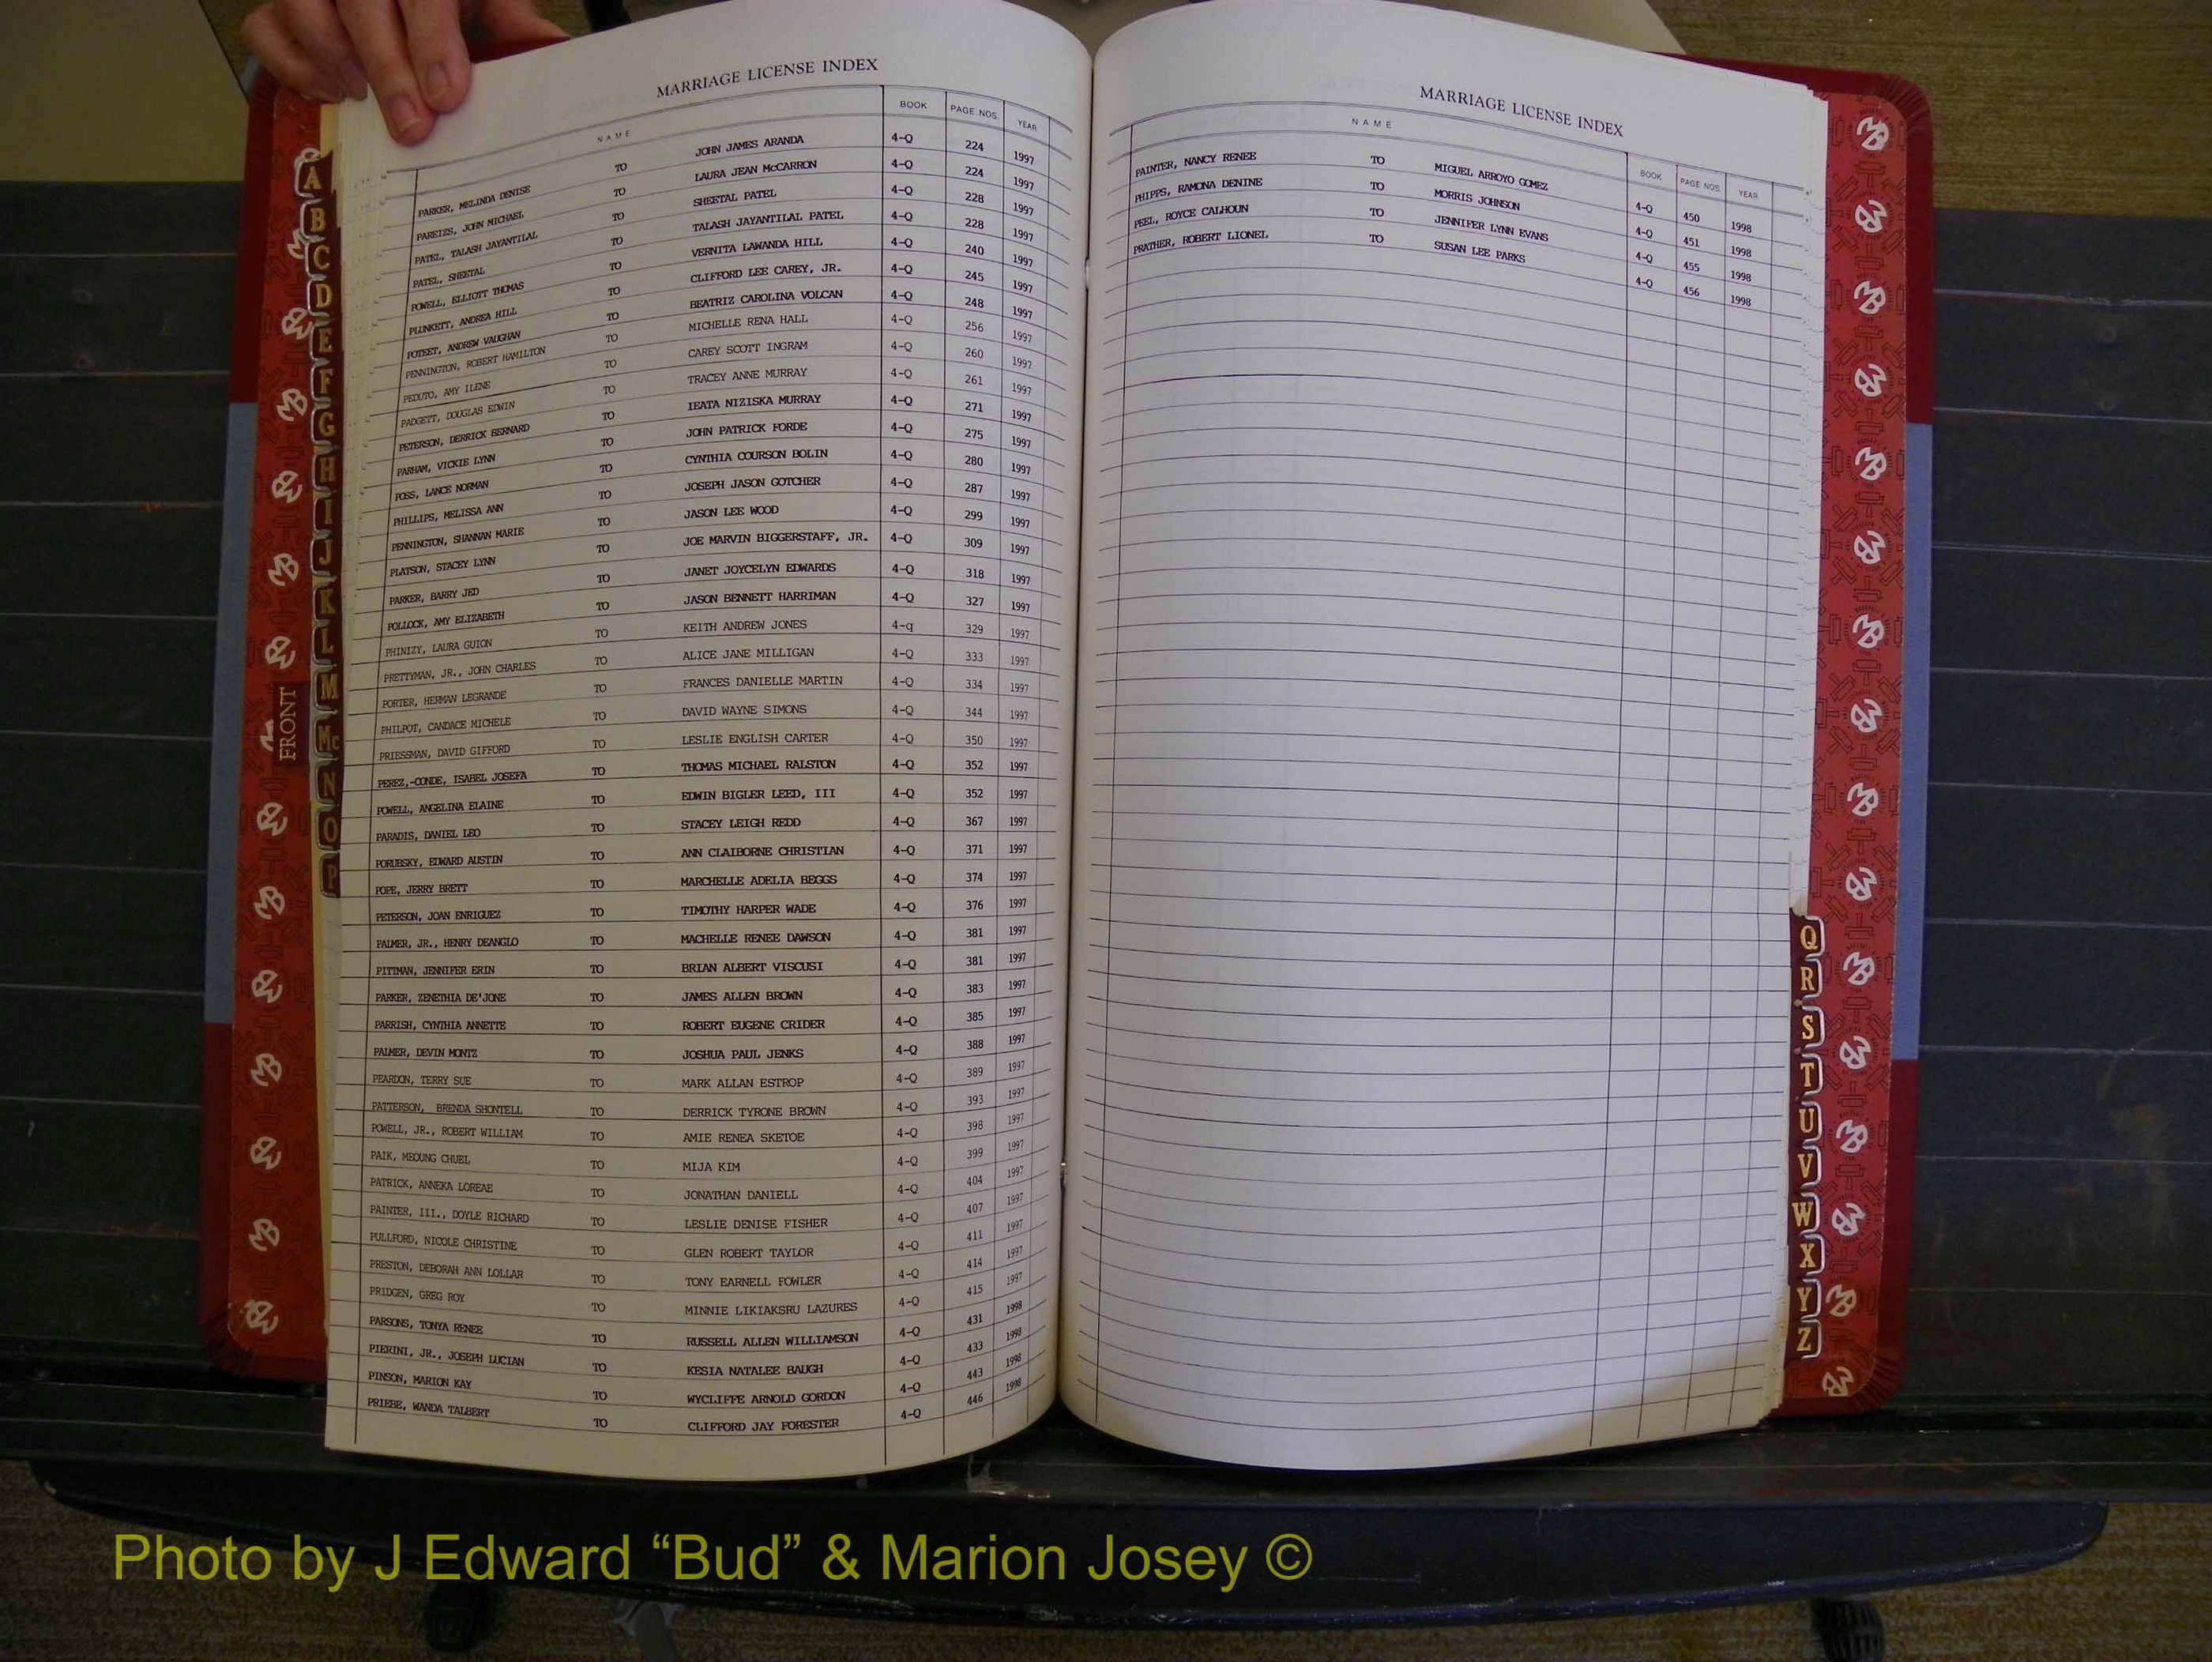 MARRIAGE LICENSE INDEX
NAME BOOK PAGE NOS. YEAR
PARKER, MELINDA DENISE TO JOHN JAMES ARANDA 4-Q 224 1997
PARETES, JOHN MICHAEL TO LAURA JEAN McCARRON 4-Q 224 1997
PATEL, TALASH JAYANTILAL TO SHEETAL PATEL 4-Q 228 1997
PATEL, SHEETAL TO TALASH JAYANTILAL PATEL 4-Q 228 1997
POWELL, ELLIOTT THOMAS TO VERNITA LAWANDA HILL 4-Q 240 1997
PLUNKETT, ANDREA HILL TO CLIFFORD LEE CAREY, JR. 4-Q 245 1997
POTEET, ANDREW VAUGHAN TO BEATRIZ CAROLINA VOLCAN 4-Q 248 1997
PENNINGTON, ROBERT HAMILTON TO MICHELLE RENA HALL 4-Q 256 1997
PEDUTO, AMY ILENE TO CAREY SCOTT INGRAM 4-Q 260 1997
PADGETT, DOUGLAS EDWIN TO TRACEY ANNE MURRAY 4-Q 261 1997
PETERSON, DERRICK BERNARD TO IEATA NIZISKA MURRAY 4-Q 271 1997
PARHAM, VICKIE LYNN TO JOHN PATRICK FORDE 4-Q 275 1997
POSS, LANCE NORMAN TO CYNTHIA COURSON BOLIN 4-Q 280 1997
PHILLIPS, MELISSA ANN TO JOSEPH JASON GOTCHER 4-Q 287 1997
PENNINGTON, SHANNAN MARIE TO JASON LEE WOOD 4-Q 299 1997
PLATSON, STACEY LYNN TO JOE MARVIN BIGGERSTAFF, JR. 4-Q 309 1997
PARKER, BARRY JED TO JANET JOYCELYN EDWARDS 4-Q 318 1997
POLLOCK, AMY ELIZABETH TO JASON BENNETT HARRIMAN 4-Q 327 1997
PHINIZY, LAURA GUION TO KEITH ANDREW JONES 4-q 329 1997
PRETTYMAN, JR., JOHN CHARLES TO ALICE JANE MILLIGAN 4-Q 333 1997
PORTER, HERMAN LEGRANDE TO FRANCES DANIELLE MARTIN 4-Q 334 1997
PHILPOT, CANDACE MICHELE TO DAVID WAYNE SIMONS 4-Q 344 1997
PRIESSMAN, DAVID GIFFORD TO LESLIE ENGLISH CARTER 4-Q 350 1997
PEREZ,-CONDE, ISABEL JOSEFA TO THOMAS MICHAEL RALSTON 4-Q 352 1997
POWELL, ANGELINA ELAINE TO EDWIN BIGLER LEED, III 4-Q 352 1997
PARADIS, DANIEL LEO TO STACEY LEIGH REDD 4-Q 367 1997
PORUBSKY, EDWARD AUSTIN TO ANN CLAIBORNE CHRISTIAN 4-Q 371 1997
POPE, JERRY BRETT TO MARCHELLE ADELIA BEGGS 4-Q 374 1997
PETERSON, JOAN ENRIGUEZ TO TIMOTHY HARPER WADE 4-Q 376 1997
PALMER, JR., HENRY DEANGLO TO MACHELLE RENEE DAWSON 4-Q 381 1997
PITTMAN, JENNIFER ERIN TO BRIAN ALBERT VISCUSI 4-Q 381 1997
PARKER, ZENETHIA DE'JONE TO JAMES ALLEN BROWN 4-Q 383 1997
PARRISH, CYNTHIA ANNETTE TO ROBERT EUGENE CRIDER 4-Q 385 1997
PALMER, DEVIN MONTZ TO JOSHUA PAUL JENKS 4-Q 388 1997
PEARDON, TERRY SUE TO MARK ALLAN ESTROP 4-Q 389 1997
PATTERSON, BRENDA SHONTELL TO DERRICK TYRONE BROWN 4-Q 393 1997
POWELL, JR., ROBERT WILLIAM TO AMIE RENEA SKETOE 4-Q 398 1997
PAIK, MEOUNG CHUEL TO MIJA KIM 4-Q 399 1997
PATRICK, ANNEKA LOREAE TO JONATHAN DANIELL 4-Q 404 1997
PAINTER, III., DOYLE RICHARD TO LESLIE DENISE FISHER 4-Q 407 1997
PULLFORD, NICOLE CHRISTINE TO GLEN ROBERT TAYLOR 4-Q 411 1997
PRESTON, DEBORAH ANN LOLLAR TO TONY EARNELL FOWLER 4-Q 414 1997
PRIDGEN, GREG ROY TO MINNIE LIKIAKSRU LAZURES 4-Q 415 1997
PARSONS, TONYA RENEE TO RUSSELL ALLEN WILLIAMSON 4-Q 431 1998
PIERINI, JR., JOSEPH LUCIAN TO KESIA NATALEE BAUGH 4-Q 433 1998
PINSON, MARION KAY TO WYCLIFFE ARNOLD GORDON 4-Q 443 1998
PRIEBE, WANDA TALBERT TO CLIFFORD JAY FORESTER 4-Q 446 1998
MARRIAGE LICENSE INDEX
NAME BOOK PAGE NOS. YEAR
PAINTER, NANCY RENEE TO MIGUEL ARROYO GOMEZ 4-Q 450 1998
PHIPPS, RAMONA DENINE TO MORRIS JOHNSON 4-Q 451 1998
PEEL, ROYCE CALHOUN TO JENNIFER LYNN EVANS 4-Q 455 1998
PRATHER, ROBERT LIONEL TO SUSAN LEE PARKS 4-Q 456 1998
A
B
C
D
E
F
G
H
I
J
K
L
M
Mc
N
O
P
FRONT
Q
R
S
T
U
V
W
X
Y
Z
Photo by J Edward “Bud” & Marion Josey ©